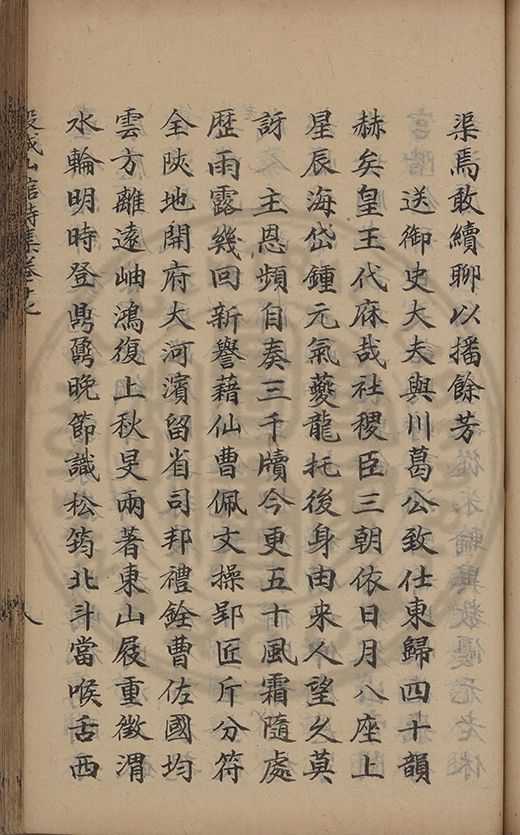 渠焉敢續聊以播餘芳
送御史大夫與川葛公致仕東歸四十韻
赫矣皇王代庥哉社稷臣三朝依日月八座上
星辰海岱鍾元氣夔龍托後身由来人望久莫
訝主恩頻自奏三千牘今更五十風霜隨處
歷雨露幾回新譽藉仙曹佩文操郢匠斤分符
全陜地開府大河濱留省司邦禮銓曹佐國均
雲方離遠岫鴻復上秋旻兩著東山屐重徵渭
水輪明時登鼎鼐晚節識松筠北斗當喉舌西
山舘詩集卷
八